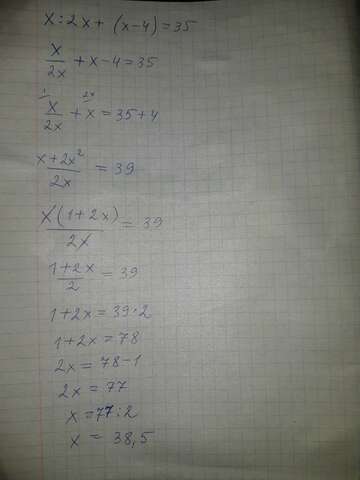 x:2x+ (x-4)=35
x/2x + x-4=35
1 2x
x/2x + x = 35+4
x+2x²/2x = 39
x(1+2x)/2x = 39
1+2x/2 = 39
1+2x=39·2
1+2x=78
2x=78-1
2x=77
x=77:2
x = 38,5